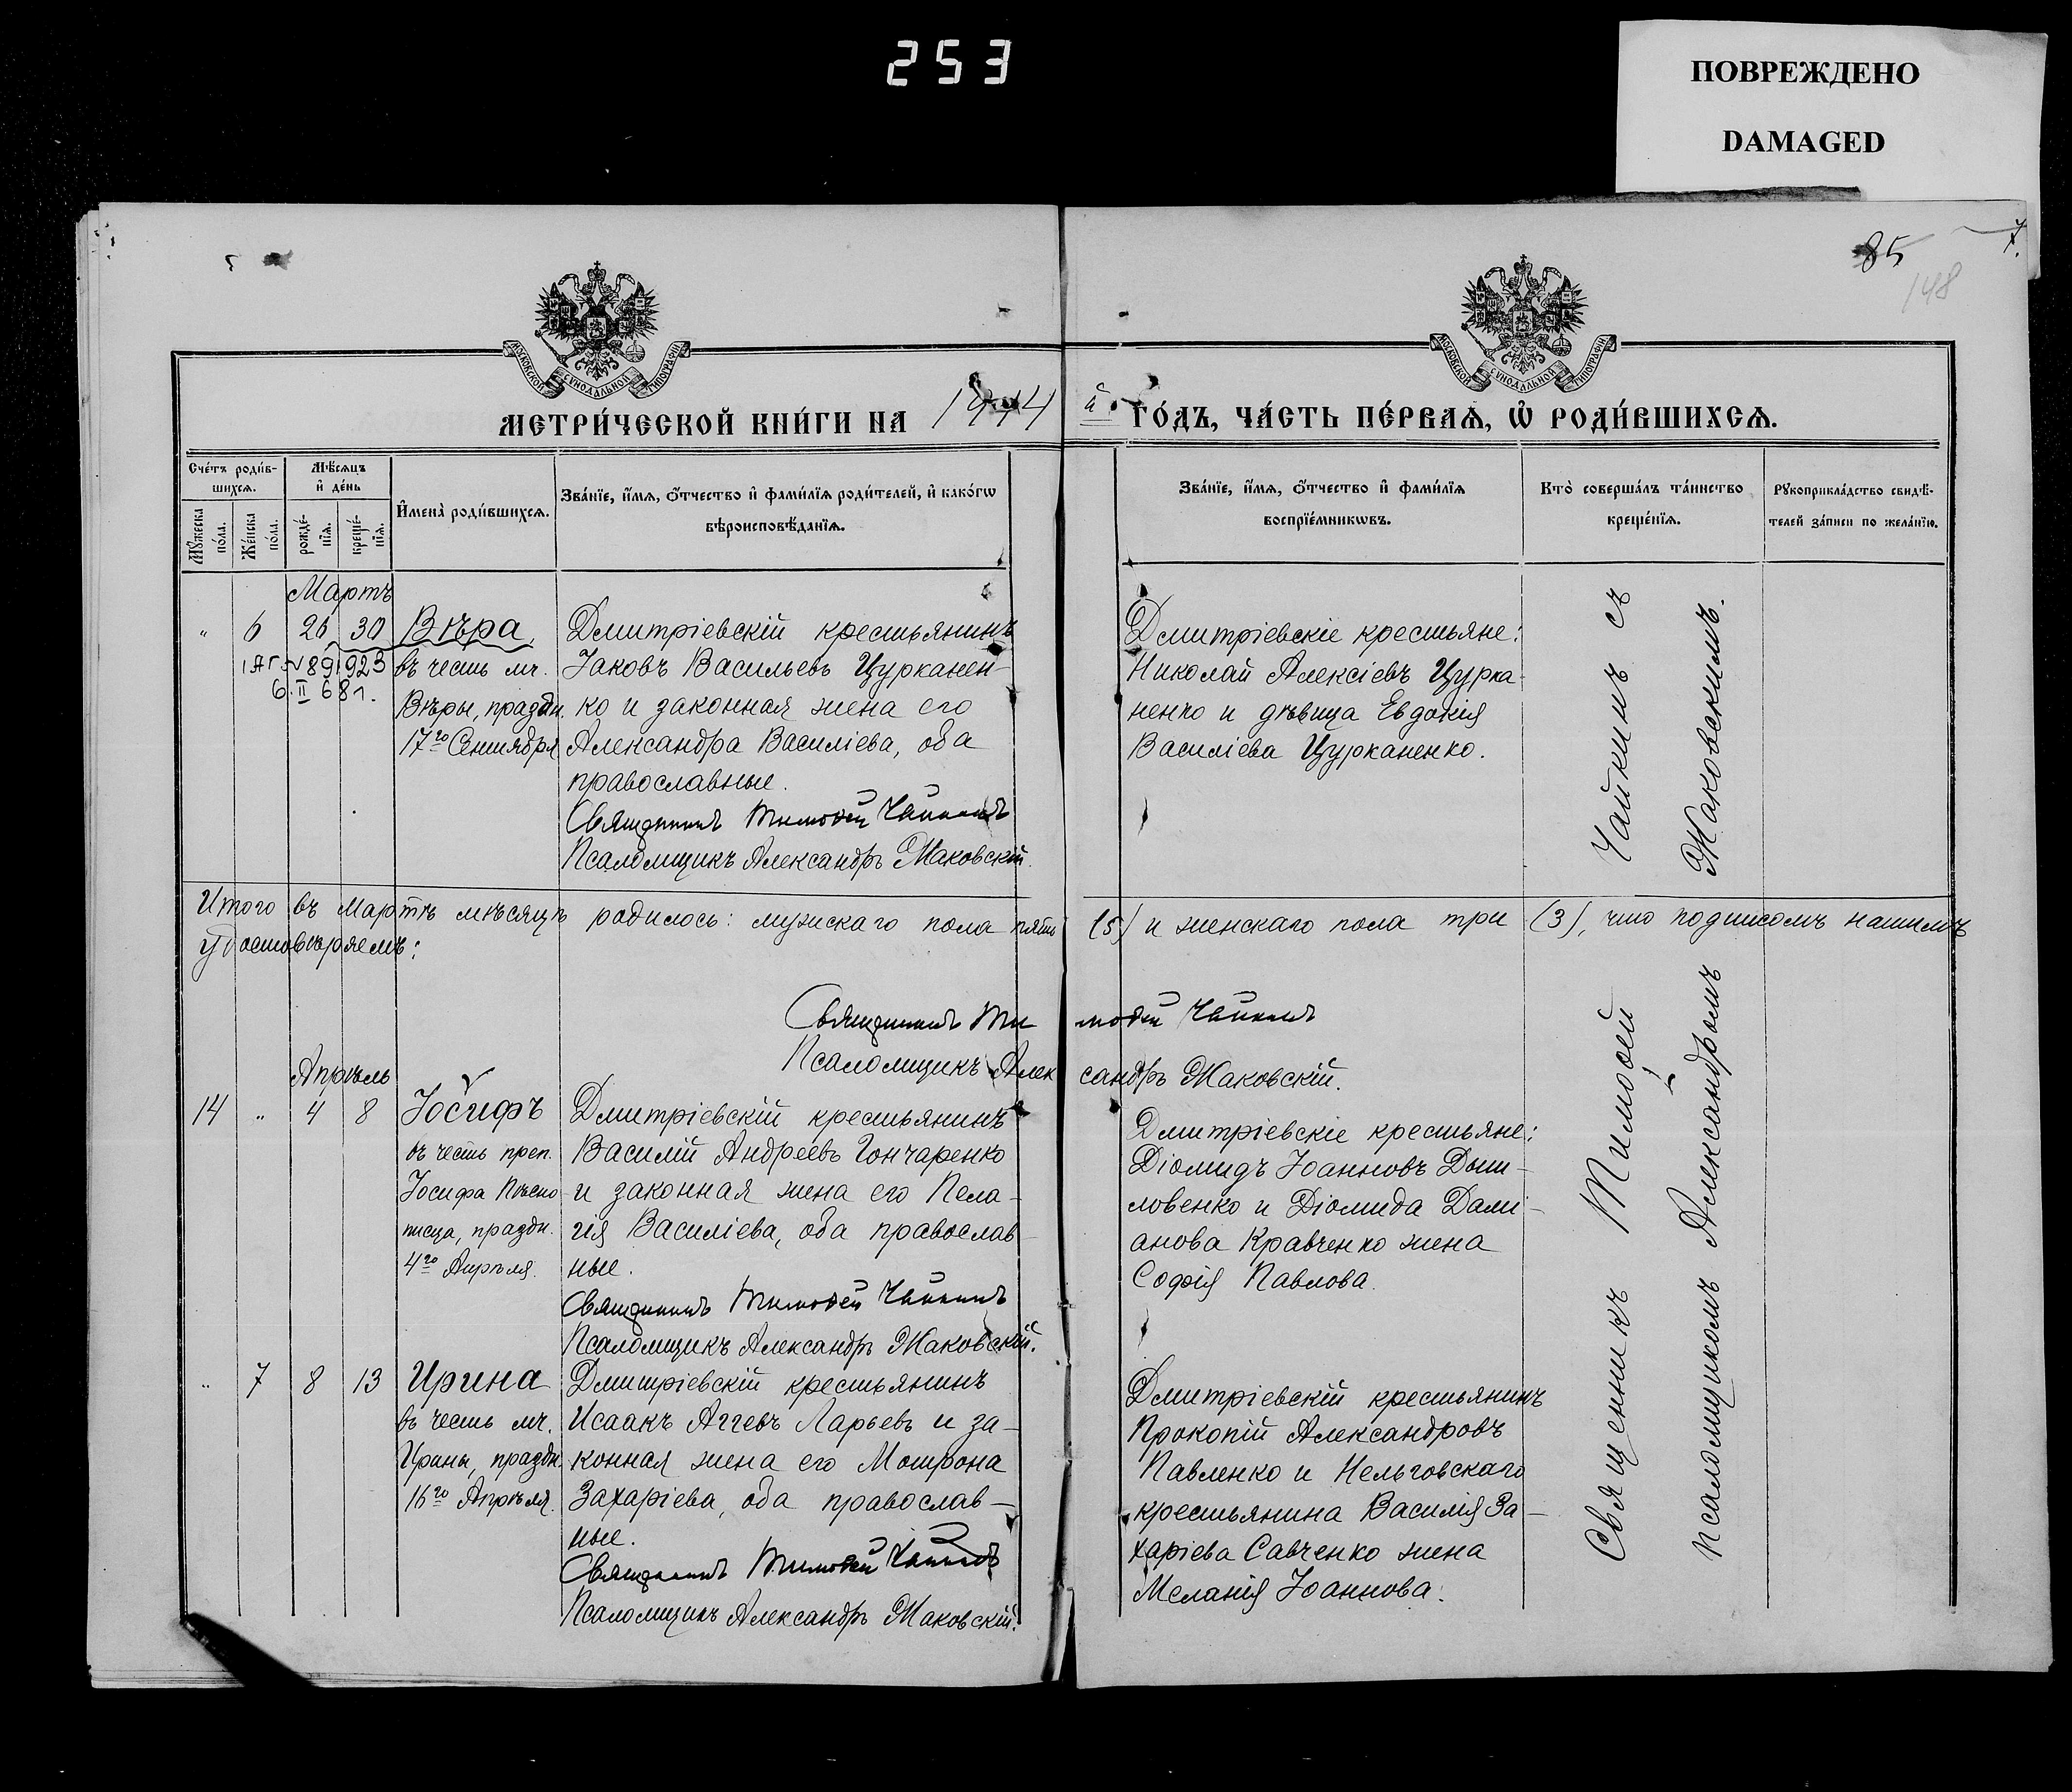 253
ПОВРЕЖДЕНО
DAMAGED
85
7.
148
МОСКОВСКОЙ СѴНОДАЛЬНОЙ ТИПОГРАФІИ
МОСКОВСКОЙ СѴНОДАЛЬНОЙ ТИПОГРАФІИ
МЕТРИ́ЧЕСКОЙ КНИ́ГИ НА 1914 й ГО́ДЪ, ЧА́СТЬ ПЕ́РВАѦ, Ѽ РОДИ́ВШИХСѦ.
Сче́тъ роди́в-
шихсѧ.
Мѣ́сѧцъ
и҆ де́нь
Мꙋ́жеска
по́ла.
Же́нска
по́ла.
рожде́-
нїѧ.
креще́-
нїѧ.
И҆мена̀ роди́вшихсѧ.
Зва́нїе, и҆́мѧ, ѻ҆́тчество и҆ фами́лїѧ роди́телей, и҆ како́гѡ
вѣроисповѣ́данїѧ.
Зва́нїе, и҆́мѧ, ѻ҆́тчество и҆ фами́лїѧ
воспрїе́мникѡвъ.
Кто̀ соверша́лъ та́инство
креще́нїѧ.
Рꙋкоприкла́дство свидѣ́-
телей за́писи по жела́нїю.
Мартъ
" 6 26 30 Вѣра,
въ честь мч.
Вѣры, праздн.
17го Сентября
6.II 68 г.
Дмитріевскій крестьянинъ
Іаковъ Васильевъ Цурканен-
ко и законная жена его
Александра Василіева, оба
православные.
Священникъ Тимоѳей Чайкинъ
Псаломщикъ Александръ Жаковскій.
Дмитріевскіе крестьяне:
Николай Алексіевъ Цурка-
ненко и дѣвица Евдокія
Василіева Цурканенко.
Итого въ Мартѣ мѣсяцѣ родилось: мужскаго пола пять (5) и женскаго пола три (3), что подписомъ нашимъ
удостовѣряемъ:
Священникъ Тимоѳей Чайкинъ
Псаломщикъ Александръ Жаковскій.
Апрѣль
14 " 4 8 Іосифъ
въ честь преп.
Іосифа Пѣсно-
писца, праздн.
4го Апрѣля.
Дмитріевскій крестьянинъ
Василій Андреевъ Гончаренко
и законная жена его Пела-
гія Василіева, оба православ-
ные.
Священникъ Тимоѳей Чайкинъ
Псаломщикъ Александръ Жаковскій.
Дмитріевскіе крестьяне:
Діомидъ Іоанновъ
ловенко и Діомида Дамі-
анова Кравченко жена
Софія Павлова.
" 7 8 13 Ирина
въ честь мч.
Ирины, праздн.
16го Апрѣля.
Дмитріевскій крестьянинъ
Исаакъ Аггевъ Ларьевъ и за-
конная жена его Мотрона
Захаріева, оба православ-
ные.
Священникъ Тимоѳей Чайкинъ
Псаломщикъ Александръ Жаковскій.
Дмитріевскій крестьянинъ
Прокопій Александровъ
Павленко и Нельговскаго
крестьянина Василія За-
харіева Савченко жена
Меланія Іоаннова.
Священникъ Тимоѳей Чайкинъ съ
псаломщикомъ Александромъ Жаковскимъ.